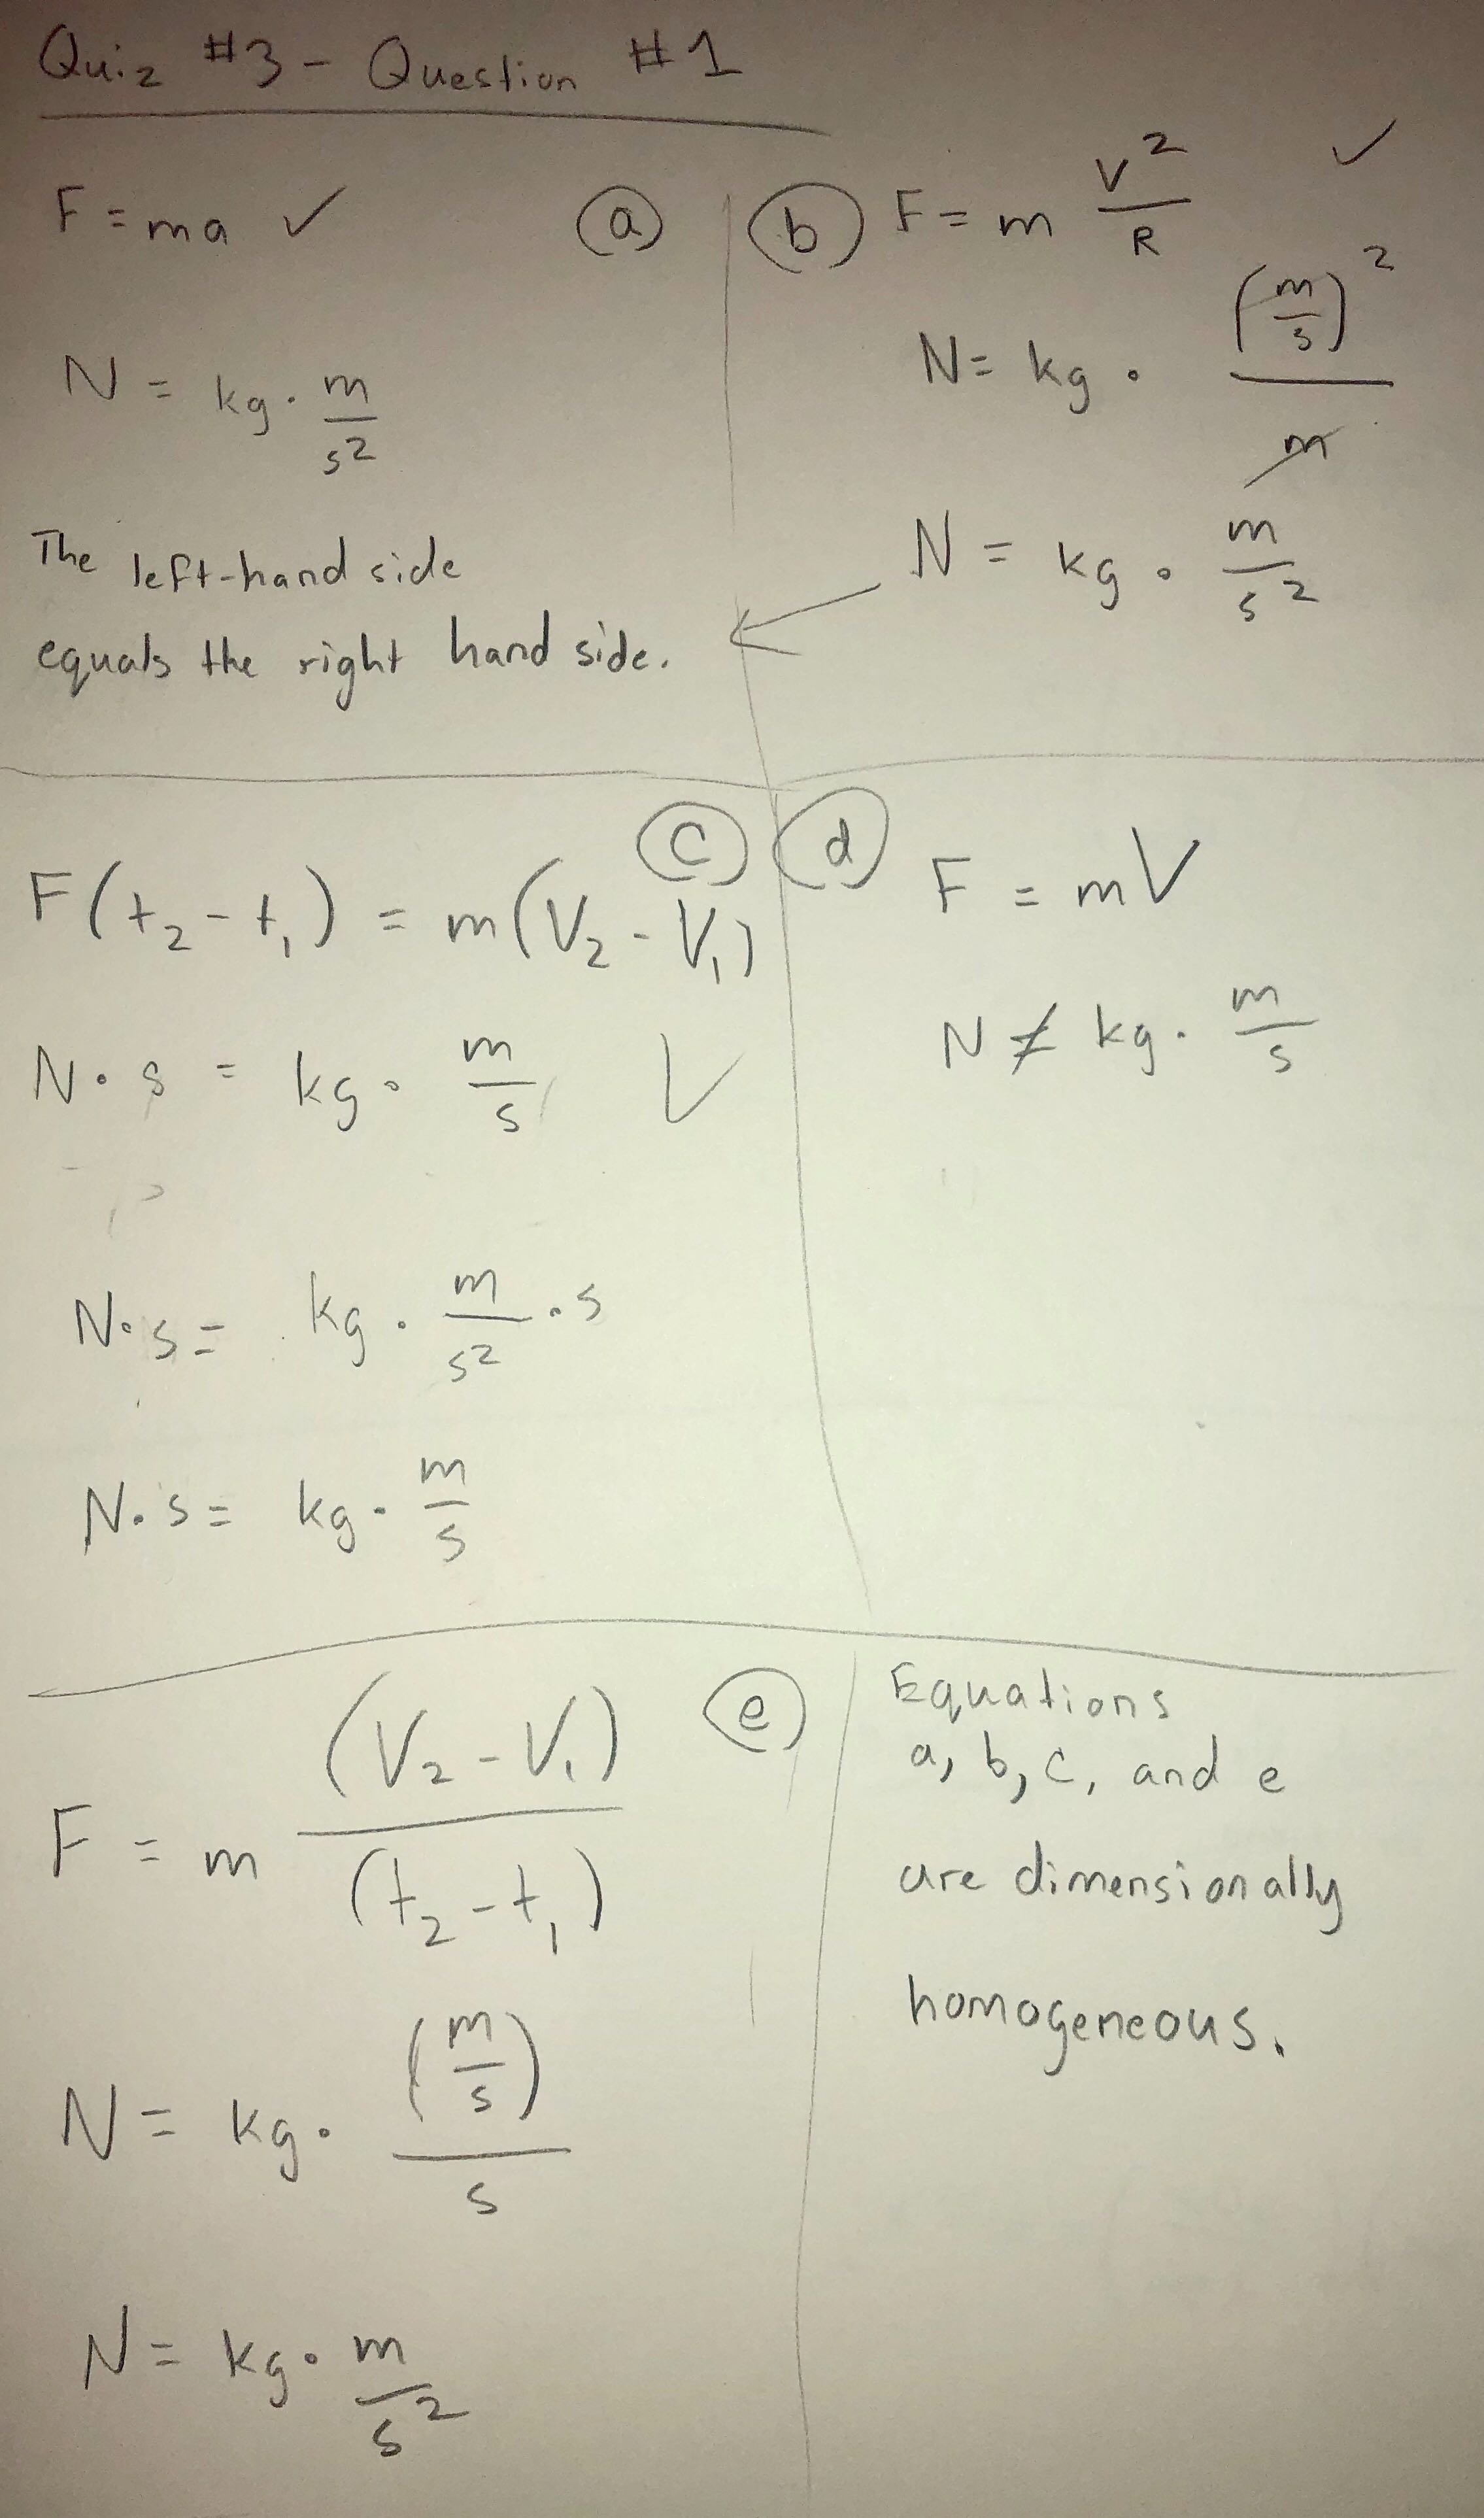 Quiz #3 - Question #1
F = ma ✓
(a)
N = kg · m/s²
The left-hand side
equals the right hand side.
(b)
F = m V²/R ✓
N = kg · (m/s)²/m
N = kg · m/s²
(c)
F(t₂ - t₁) = m(V₂ - V₁)
N · s = kg · m/s ✓
N · s = kg · m/s² · s
N · s = kg · m/s
(d)
F = mV
N ≠ kg · m/s
(e)
F = m (V₂ - V₁)/(t₂ - t₁)
N = kg · (m/s)/s
N = kg · m/s²
Equations
a, b, c, and e
are dimensionally
homogeneous.